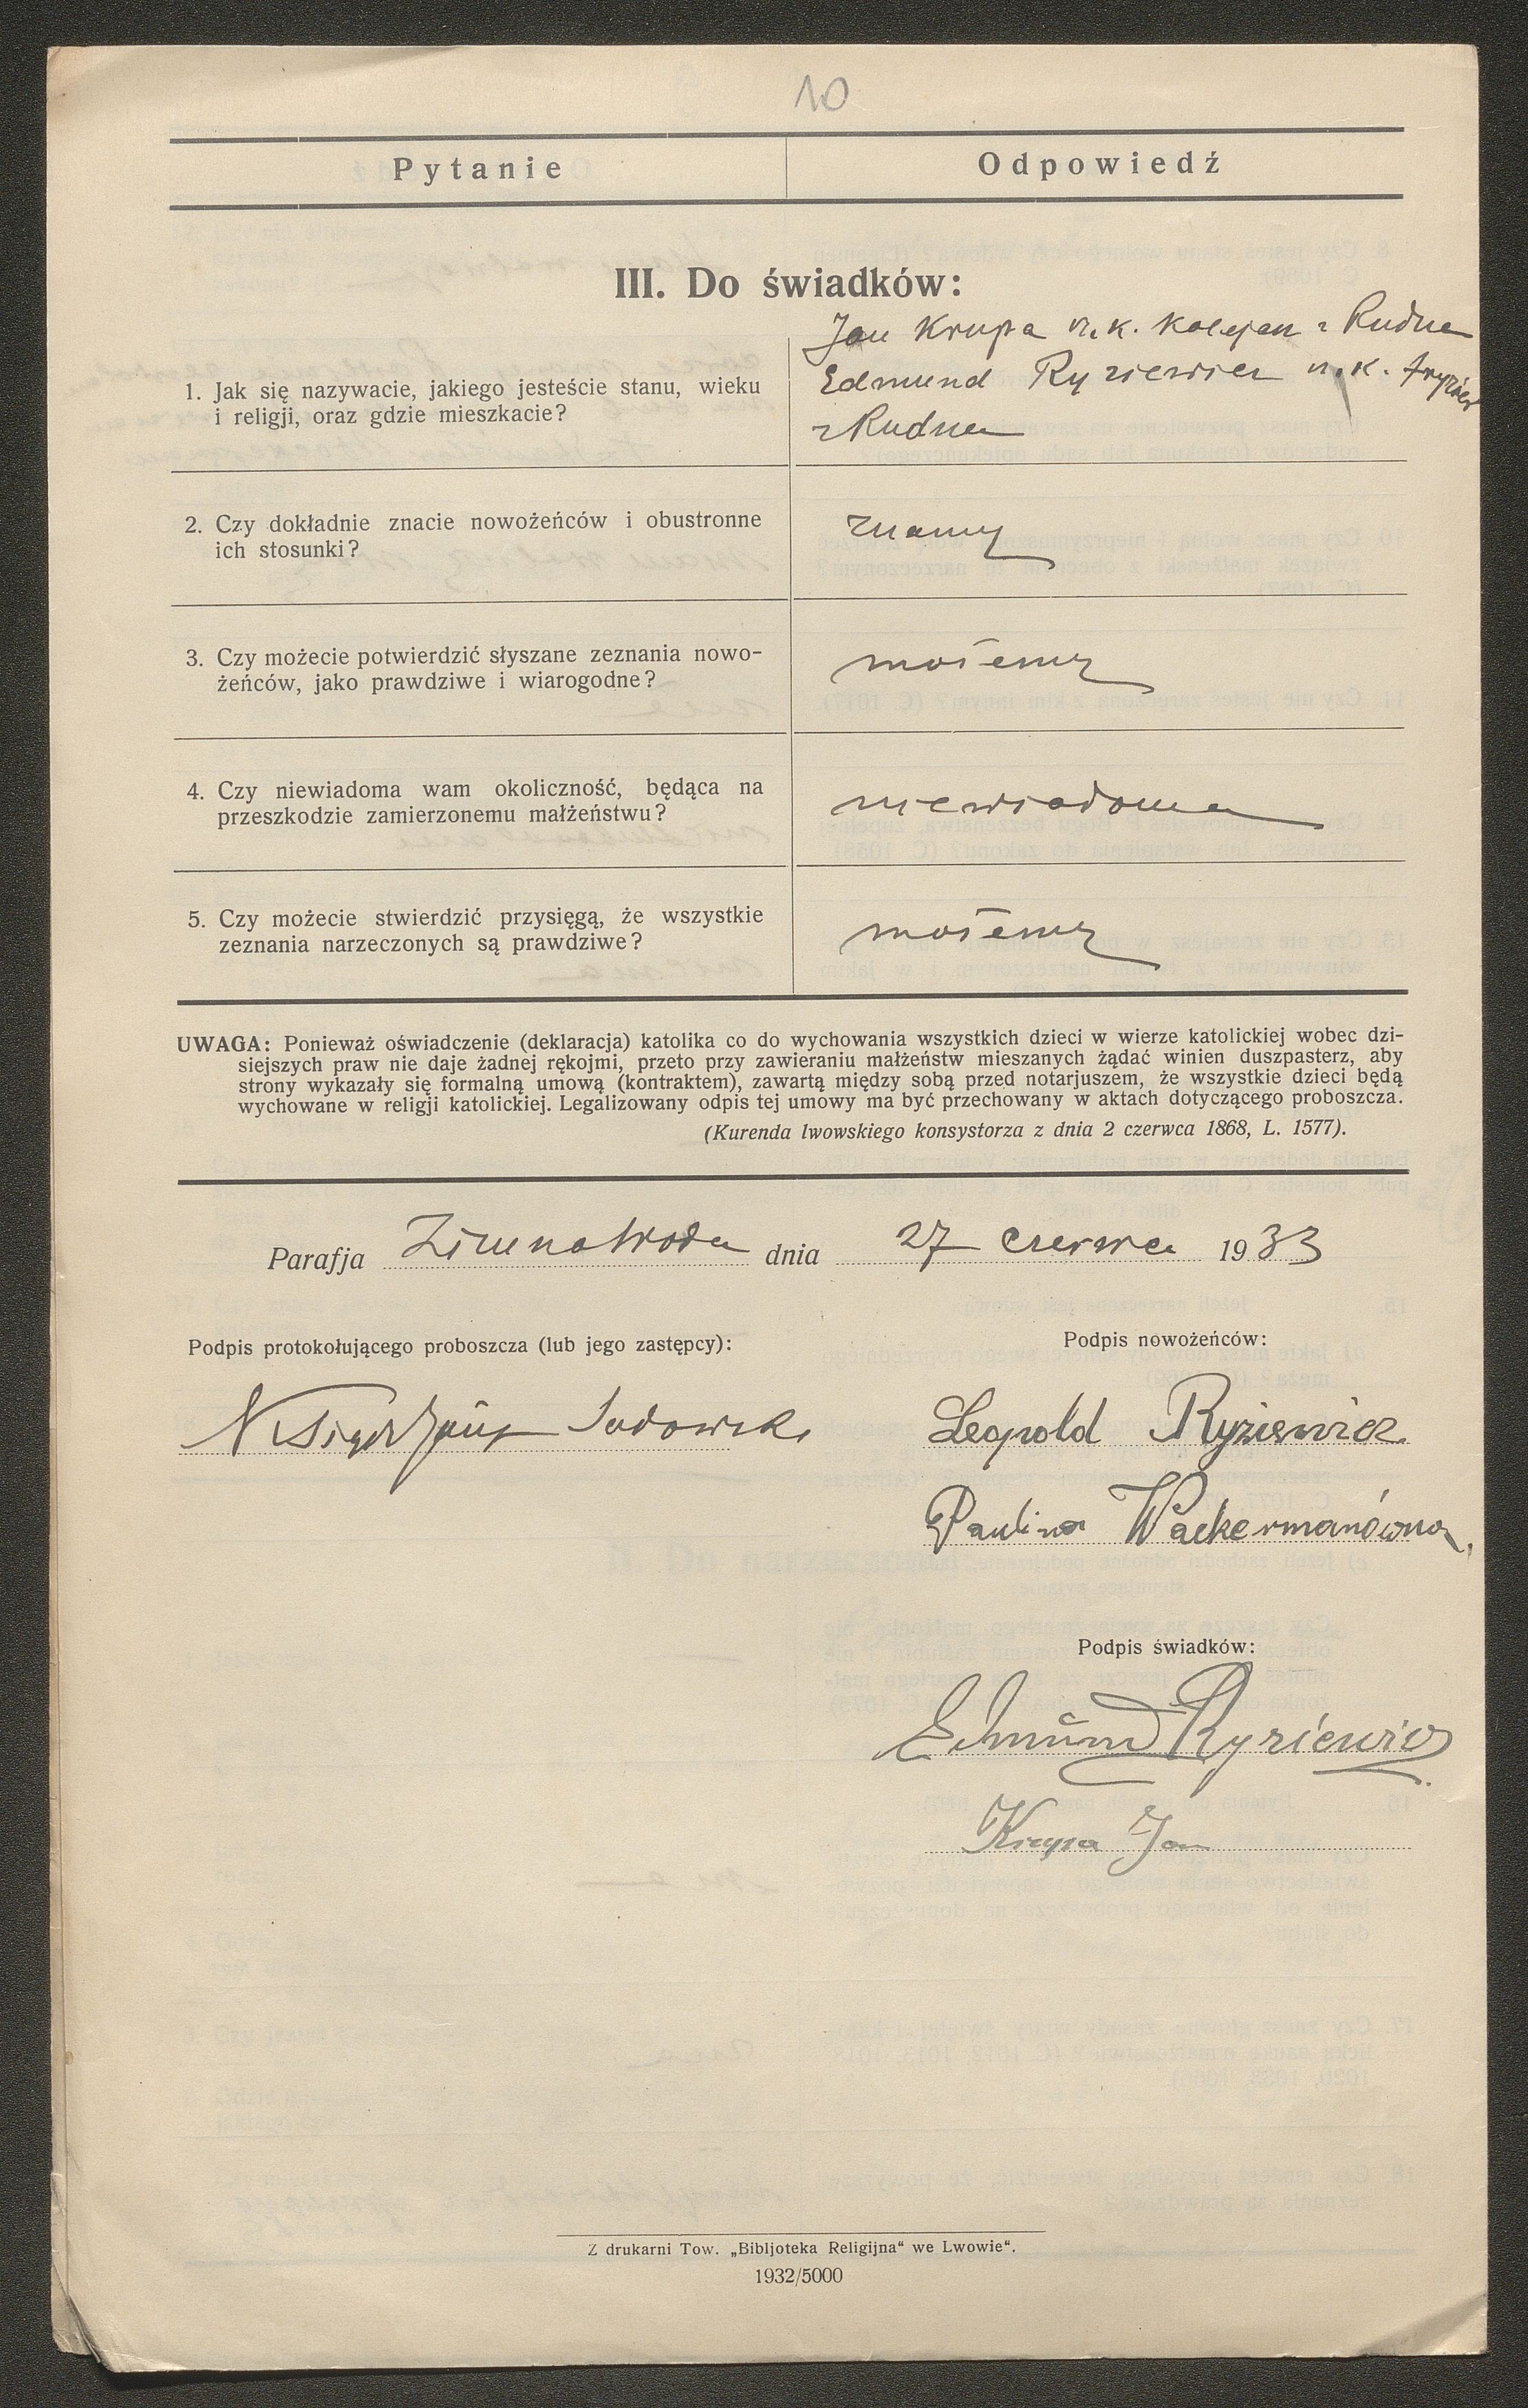 10
Pytanie Odpowiedź
III. Do świadków:
Jan Krupa r. k. kolejarz z Rudna
Edmund Ryziewicz r. k. fryzjer
z Rudna
1. Jak się nazywacie, jakiego jesteście stanu, wieku
i religji, oraz gdzie mieszkacie?
2. Czy dokładnie znacie nowożeńców i obustronne
ich stosunki?
znamy
3. Czy możecie potwierdzić słyszane zeznania nowo-
żeńców, jako prawdziwe i wiarogodne?
możemy
4. Czy niewiadoma wam okoliczność, będąca na
przeszkodzie zamierzonemu małżeństwu?
niewiadoma
5. Czy możecie stwierdzić przysięgą, że wszystkie
zeznania narzeczonych są prawdziwe?
możemy
UWAGA: Ponieważ oświadczenie (deklaracja) katolika co do wychowania wszystkich dzieci w wierze katolickiej wobec dzi-
siejszych praw nie daje żadnej rękojmi, przeto przy zawieraniu małżeństw mieszanych żądać winien duszpasterz, aby
strony wykazały się formalną umową (kontraktem), zawartą między sobą przed notarjuszem, że wszystkie dzieci będą
wychowane w religji katolickiej. Legalizowany odpis tej umowy ma być przechowany w aktach dotyczącego proboszcza.
(Kurenda lwowskiego konsystorza z dnia 2 czerwca 1868, L. 1577).
Parafja Zimnawoda dnia 27 czerwca 1933
Podpis protokołującego proboszcza (lub jego zastępcy):
Podpis nowożeńców:
Sadowski
Leopold Ryziewicz
Paulina Wackermanówna
Podpis świadków:
Edmund Ryziewicz
Krupa Jan
Z drukarni Tow. „Bibljoteka Religijna“ we Lwowie“.
1932/5000